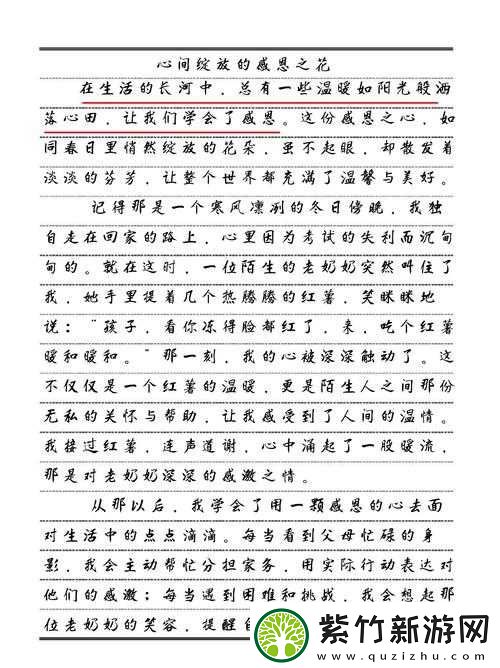 心间绽放的感恩之花
在生活的长河中，总有一些温暖如阳光般洒
落心田，让我们学会了感恩。这份感恩之心，如
同春日里悄然绽放的花朵，虽不起眼，却散发着
淡淡的芬芳，让整个世界都充满了温馨与美好。
记得那是一个寒风凛冽的冬日傍晚，我独
自走在回家的路上，心里因为考试的失利而沉甸
甸的。就在这时，一位陌生的老奶奶突然叫住了
我，她手里提着几个热腾腾的红薯，笑眯眯地
说：“孩子，看你冻得脸都红了，来，吃个红薯
暖和暖和。”那一刻，我的心被深深触动了。这
不仅仅是一个红薯的温暖，更是陌生人之间那份
无私的关怀与帮助，让我感受到了人间的温情。
我接过红薯，连声道谢，心中涌起了一股暖流，
那是对老奶奶深深的感激之情。
从那以后，我学会了用一颗感恩的心去面
对生活中的点点滴滴。每当看到父母忙碌的身
影，我会主动帮忙分担家务，用实际行动表达对
他们的感激；每当遇到困难和挑战，我会想起那
位老奶奶的笑容，提醒自
紫竹新游网
www.quzizhu.com